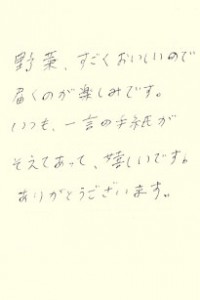 野菜、すごくおいしいので
届くのが楽しみです。
いつも、一言の手紙が
そえてあって、嬉しいです。
ありがとうございます。